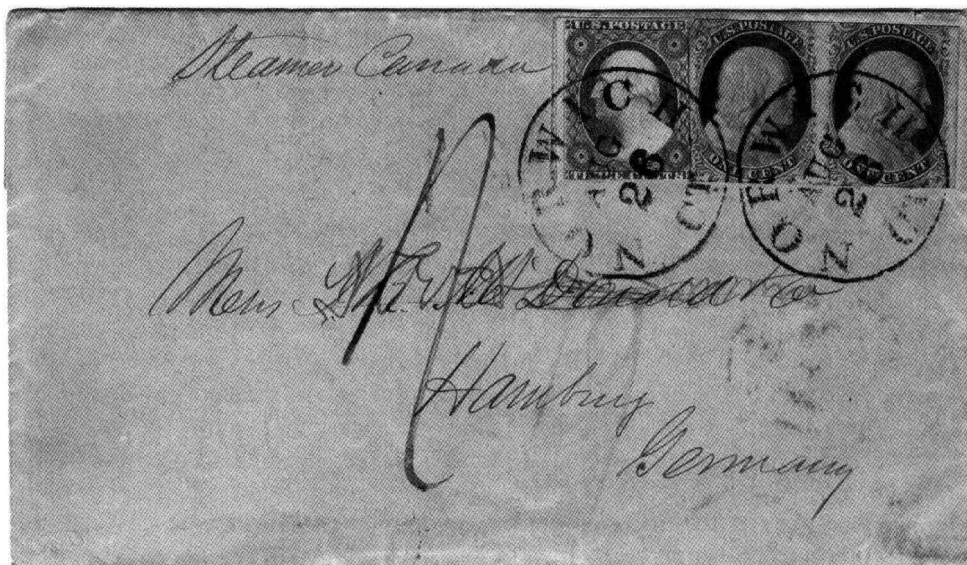 Steamer Canada
U.S. POSTAGE U.S. POSTAGE U.S. POSTAGE
THREE CENTS ONE CENT ONE CENT
NORWICH CT. AUG 26
NORWICH CT. AUG 26
Mess
Hamburg
Germany